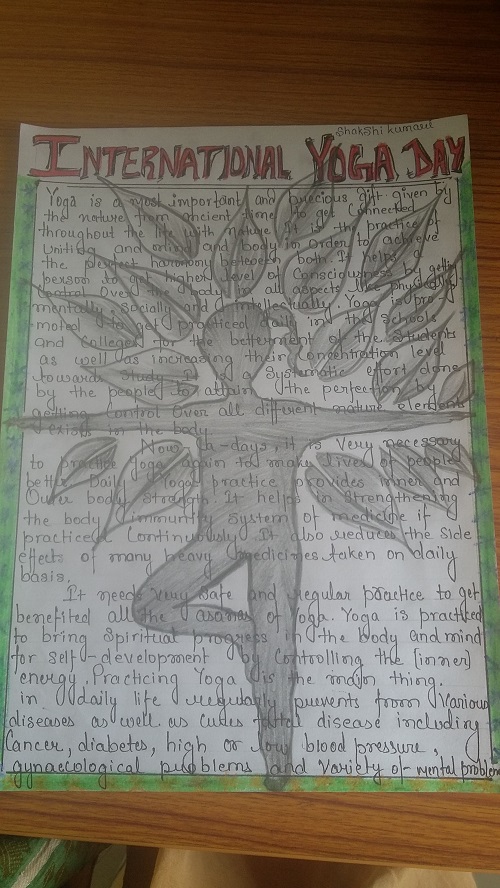 Shakshi kumari
INTERNATIONAL YOGA DAY
Yoga is a most important and precious gift given by
the nature from ancient time to get connected
throughout the life with nature. It is the practice of
Uniting and mind and body in order to achieve
the perfect harmony between both It helps a
person to get higher level of Consciousness by getting
Control Over the body in all aspects like physically,
mentally, Socially and intellectually. Yoga is pro
-moted to get practiced daily in the Schools
and College for the betterment of the students
as well as increasing their Concentration level
towards Study. It is a Systematic effort done
by the people to attain the perfection by
getting Control Over all different nature elements
exists in the body
Now a-days, it is very necessary
to practice Yoga again to make lives of people
better Daily Yoga practice provides inner and
Outer body strength. It helps in Strengthening
the body immunity System of medicine if
practiced Continuously It also reduces the side
effects of many heavy medicines taken on daily
basis.
It needs very safe and regular practice to get
benefited all the asanas of Yoga. Yoga is practiced
to bring Spiritual progress in the body and mind
for self-development by Controlling the (inner)
energy. Practicing Yoga is the major thing.
in daily life regularly prevents from various
diseases as well as cures fatal disease including
Cancer, diabetes, high or low blood pressure,
gynaecological problems and variety of mental problem